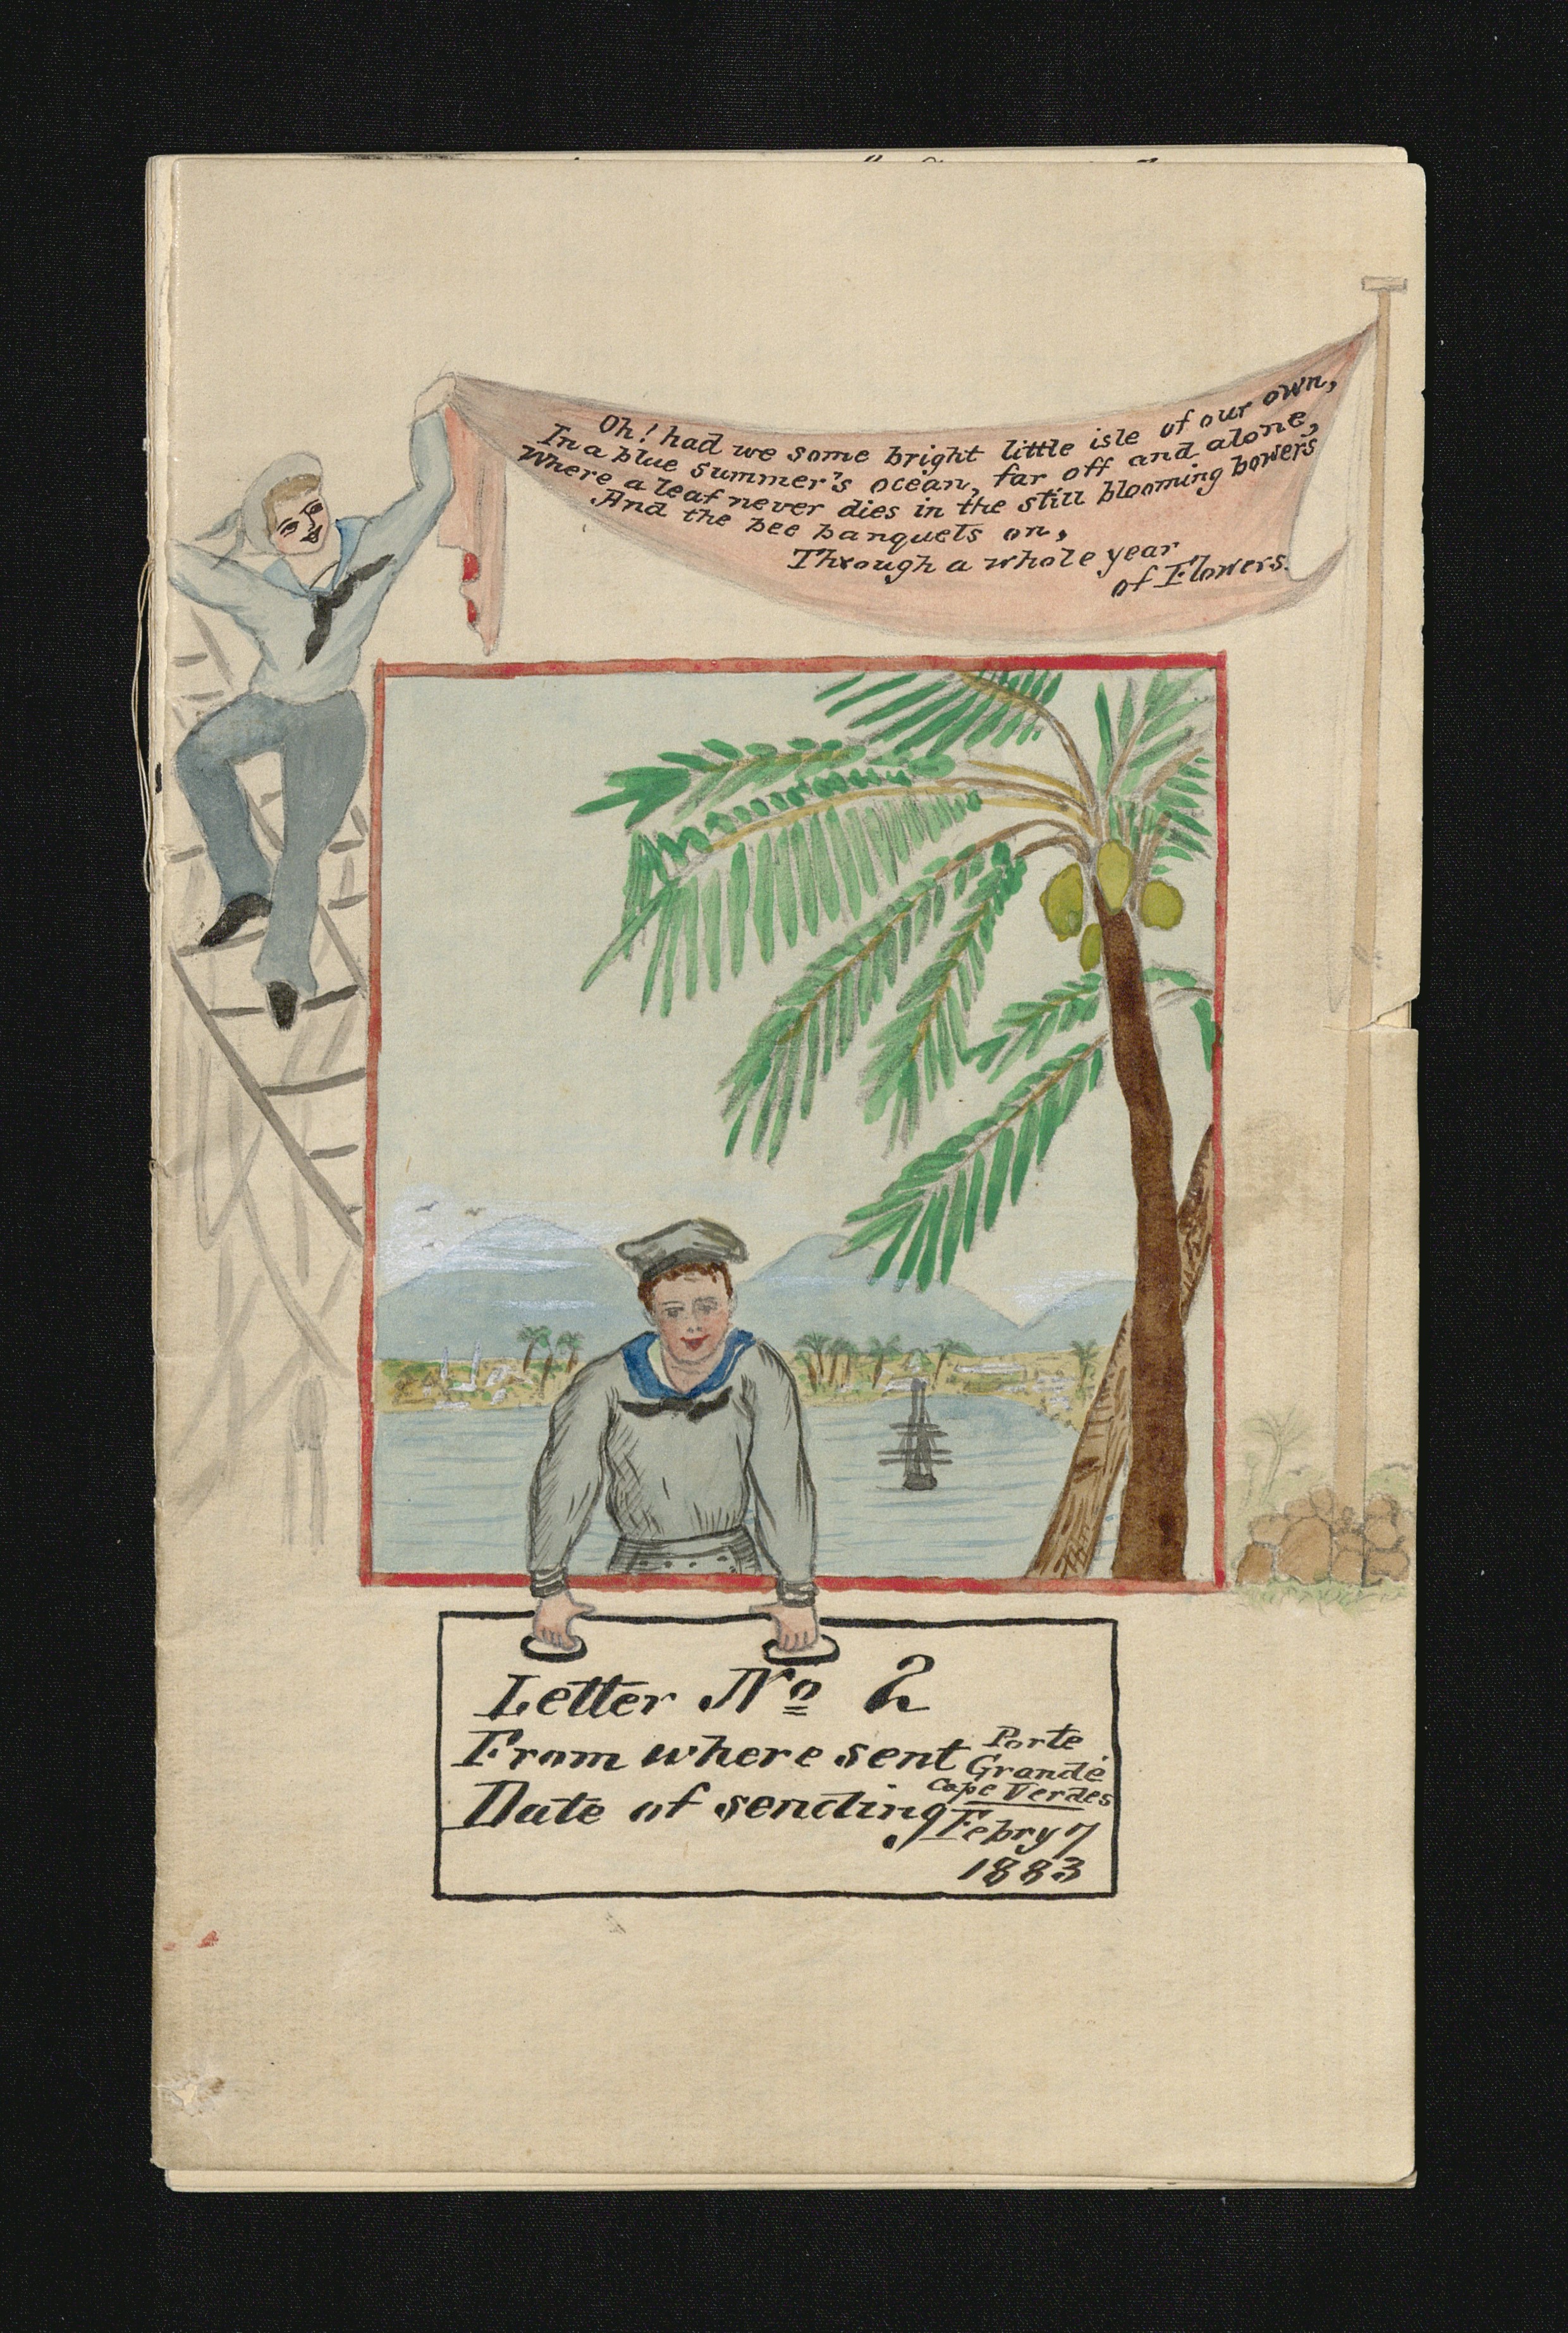 Oh! had we some bright little isle of our own,
In a blue summer's ocean, far off and alone,
Where a leaf never dies in the still blooming bowers
And the bee banquets on,
Through a whole year
of Flowers.
Letter No 2
From where sent Porte
Grandé
Cape Verdes
Date of sending Febry 7
1883